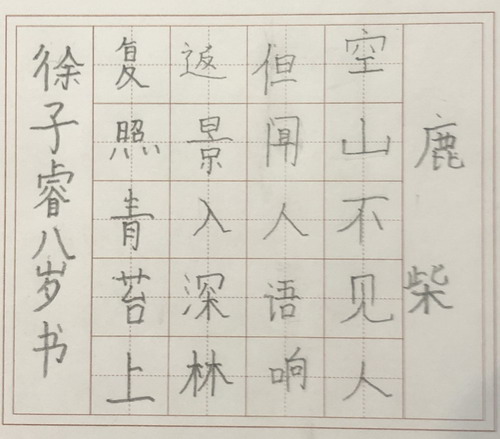 鹿柴
空山不见人
但闻人语响
返景入深林
复照青苔上
徐子睿八岁书